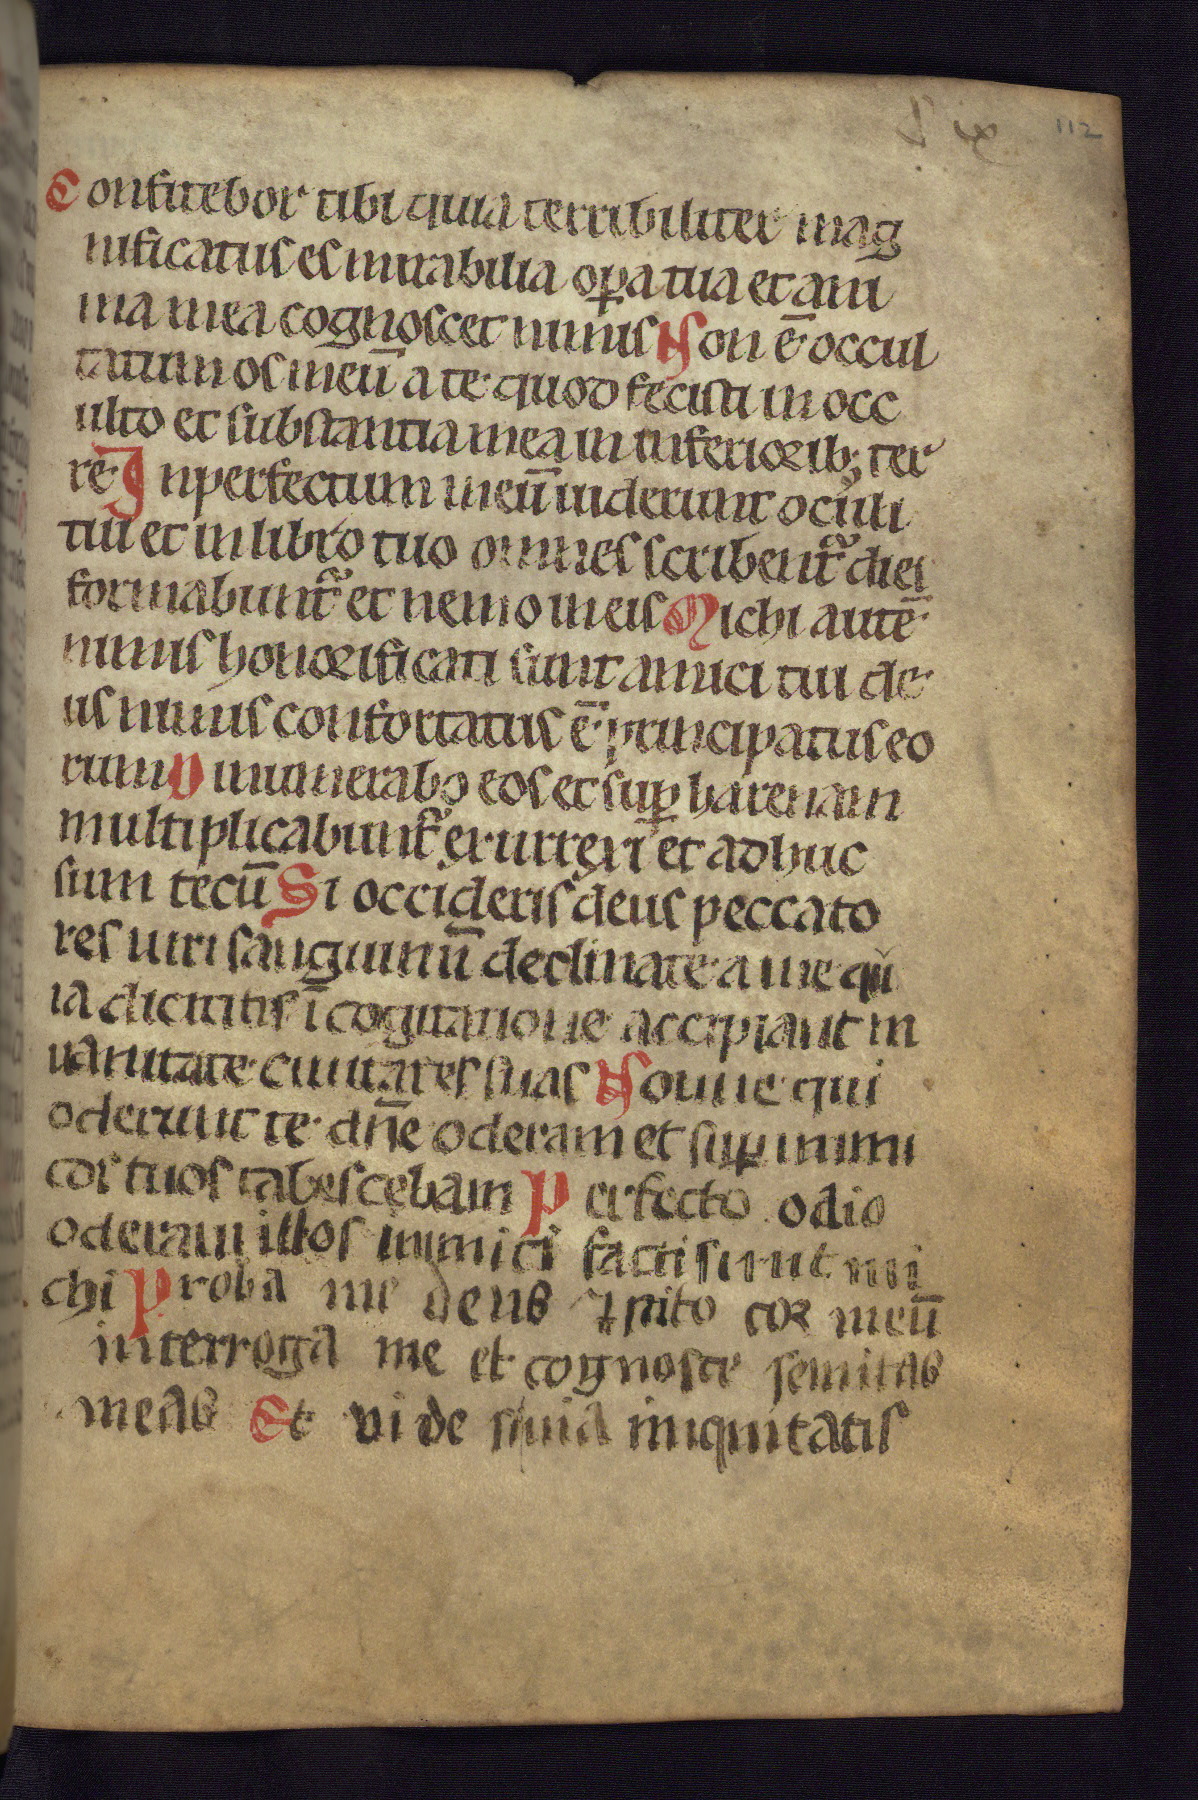 112
Confitebor tibi quia terribiliter mag
nificatus es mirabilia oꝑa tua et ani
ma mea cognoscet nimis Non ē occul
tatum os meū a te quod fecisti in occ
ulto et substantia mea in inferiorib; ter
re Inperfectum meū uiderunt oculi
tui et in libro tuo omnes scribent᷑ dies
formabunt᷑ et nemo in eis Michi autē
nimis honorificati sunt amici tui de
us nimis confortatus ē principatus eo
rum Dinumerabo eos et suꝑ harenam
multiplicabunt᷑ exurrexi et adhuc
sum tecū Si occideris deus peccato
res uiri sanguinū declinate a me qu
ia dicititis ī cogitatione accipiant in
uanitate ciuitates suas Nonne qui
oderunt te dn̄e oderam et suꝑ inimi
cos tuos tabescebam Perfecto odio
oderam illos inimici facti sunt mi
chi Proba me deus ⁊ scito cor meū
interroga me et cognosce semitas
meas Et vide si uia iniquitatis